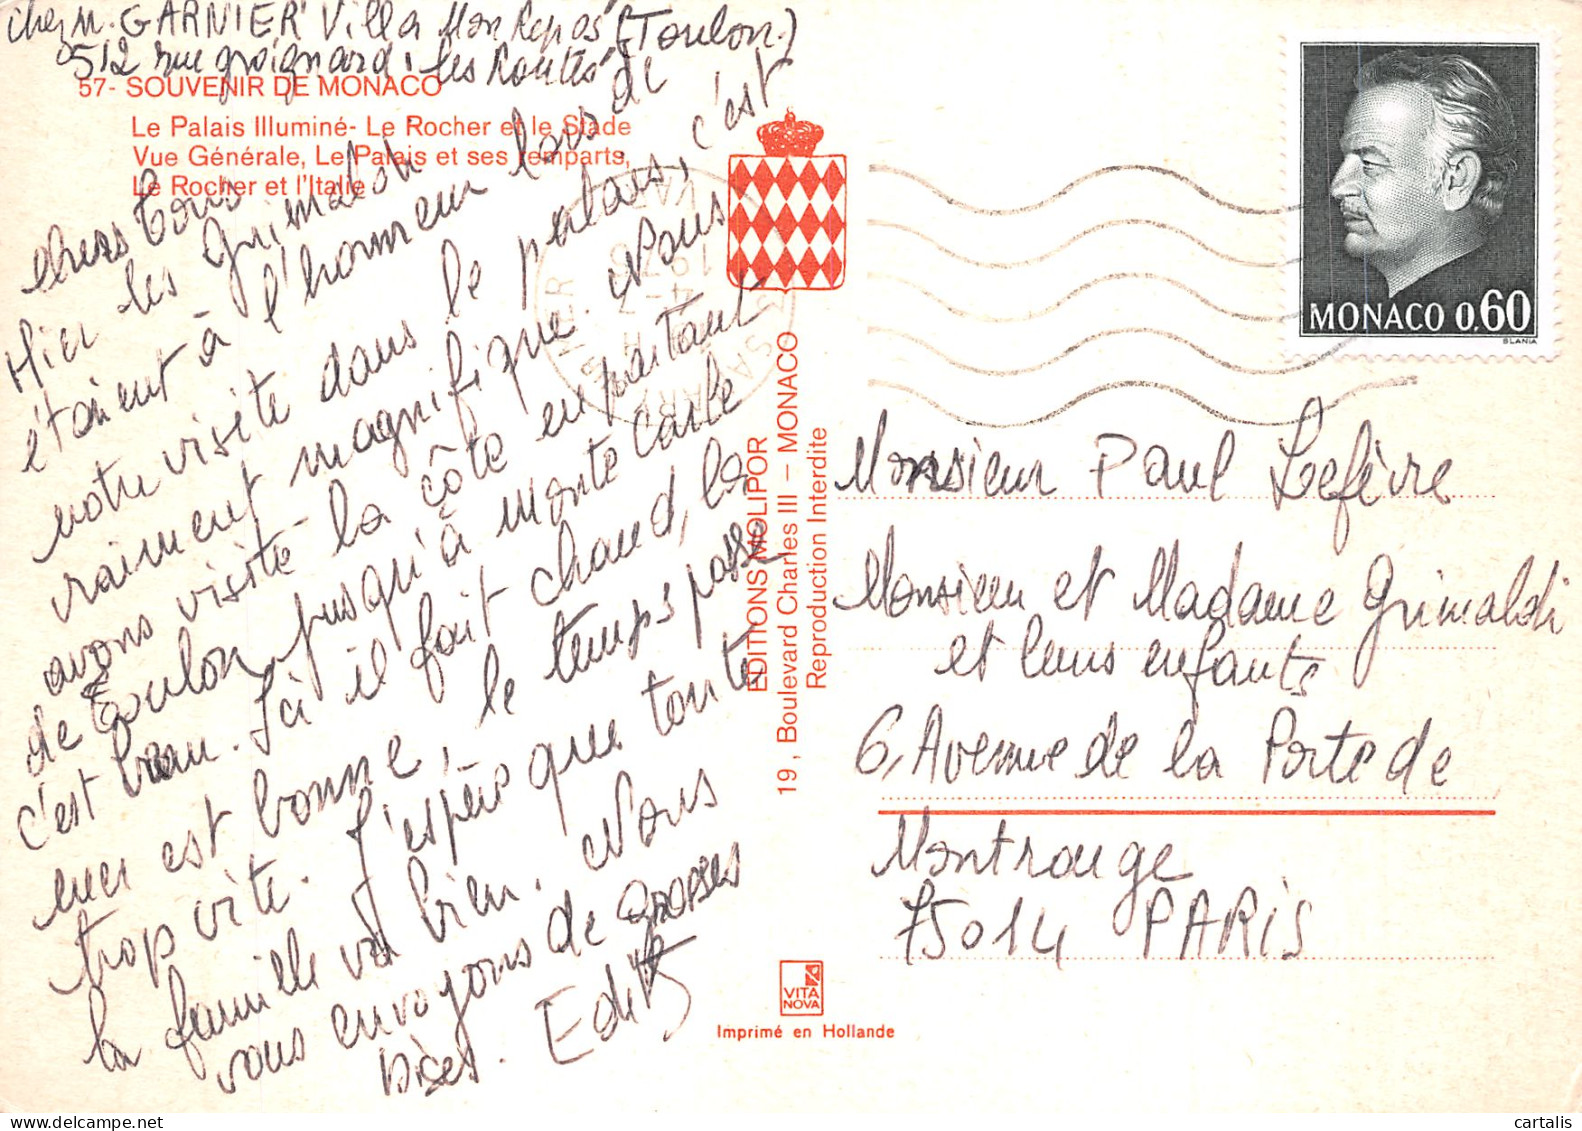 chez M. GARNIER Villa Mon Repos (Toulon.)
512 rue groignard. les Routes
57- SOUVENIR DE MONACO
Le Palais Illuminé- Le Rocher et le Stade
Vue Générale, Le Palais et ses remparts,
Le Rocher et l'Italie
chers tous
Hier les Grimaldi
étaient à l'honneur lors de
notre visite dans le palais, c'est
vraiment magnifique. Nous
avons visité la côte en partant
de Toulon jusqu'à monte carle
c'est beau. Ici il fait chaud, la
mer est bonne, le temps passe
trop vite. J'espère que toute
la famille va bien. Nous
vous envoyons de grosses
bises. Edith
EDITIONS MOLIPOR
19, Boulevard Charles III – MONACO
Reproduction Interdite
VITA
NOVA
Imprimé en Hollande
MONACO 0.60
SLANIA
Monsieur Paul Lefèvre
Monsieur et Madame Grimaldi
et leurs enfants
6, Avenue de la Porte de
Montrouge
75014 PARIS